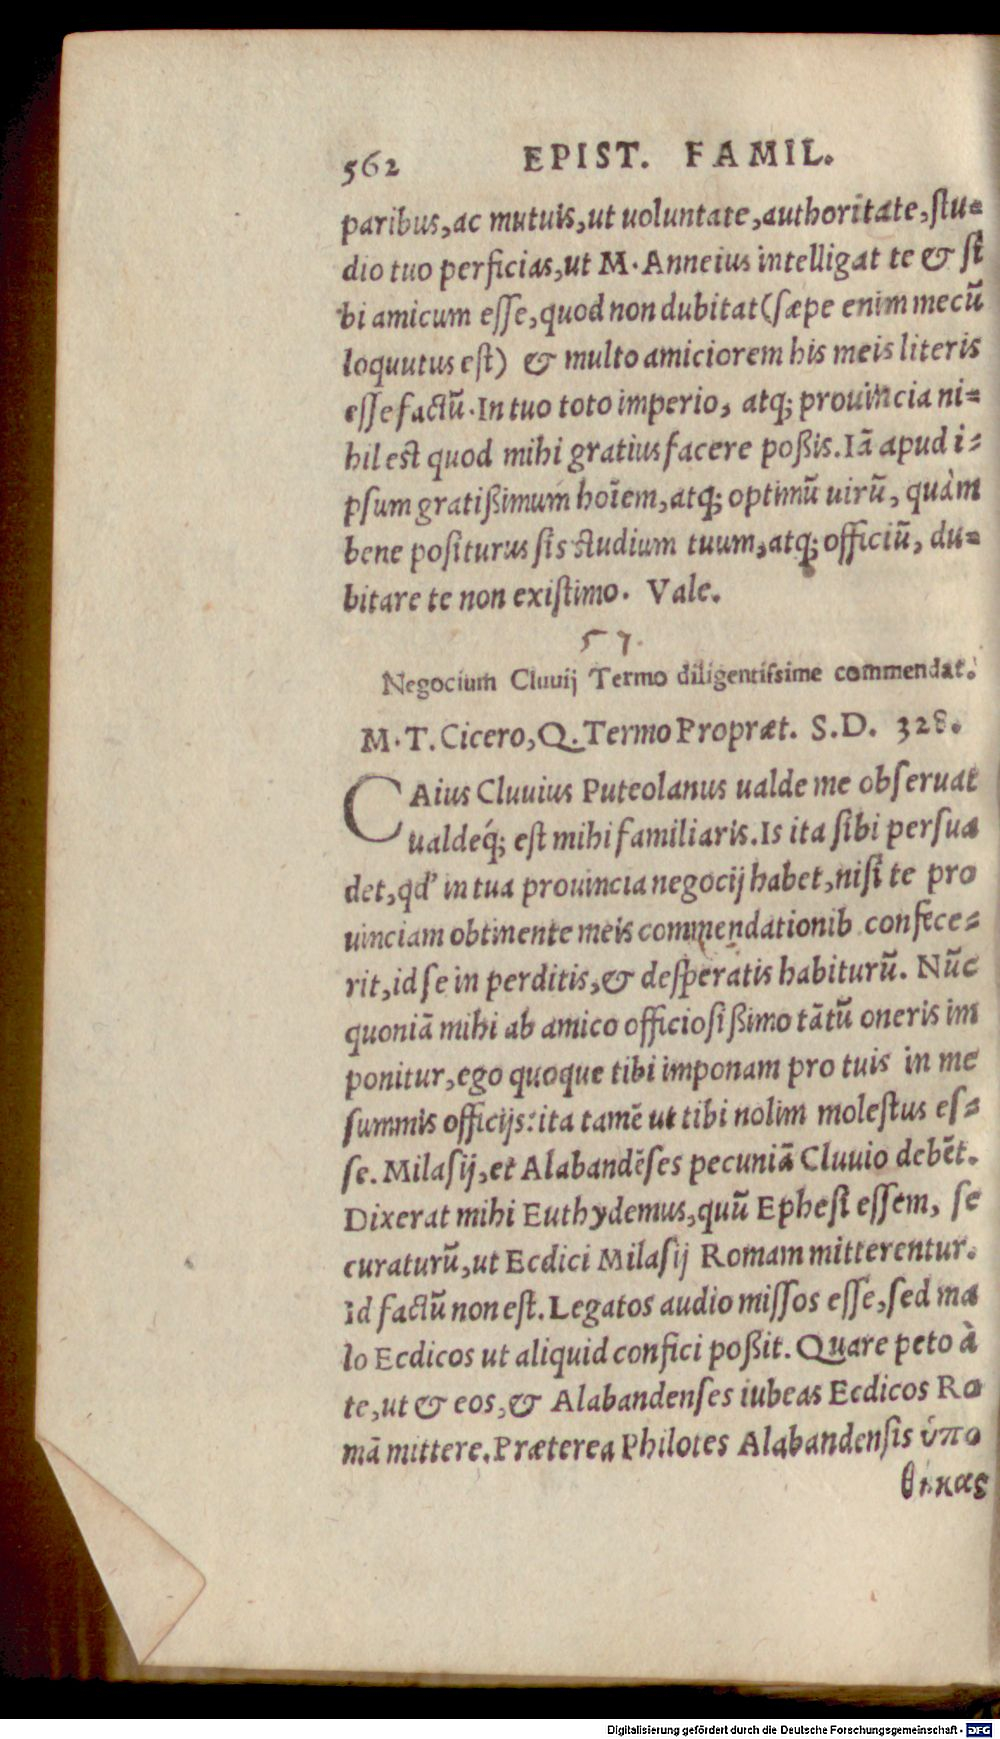 562 EPIST. FAMIL.
paribus, ac mutuis, ut uoluntate, authoritate, stu-
dio tuo perficias, ut M. Anneius intelligat te & si
bi amicum esse, quod non dubitat (sæpe enim mecũ
loquutus est) & multo amiciorem his meis literis
esse factũ. In tuo toto imperio, atq; prouincia ni-
hil est quod mihi gratius facere poßis. Iã apud i-
psum gratißimum hoĩem, atq; optimũ uirũ, quàm
bene positurus sis studium tuum, atq; officiũ, du-
bitare te non existimo. Vale.
57.
Negocium Cluuij Termo diligentissime commendat.
M. T. Cicero, Q. Termo Propræt. S. D. 328.
CAius Cluuius Puteolanus ualde me obseruat
ualdeq́; est mihi familiaris. Is ita sibi persua
det, qd' in tua prouincia negocij habet, nisi te pro
uinciam obtinente meis commendationib confece-
rit, id se in perditis, & desperatis habiturũ. Nũc
quoniã mihi ab amico officiosißimo tãtũ oneris im
ponitur, ego quoque tibi imponam pro tuis in me
summis officijs: ita tamẽ ut tibi nolim molestus es-
se. Milasij, et Alabandẽses pecuniã Cluuio debẽt.
Dixerat mihi Euthydemus, quũ Ephesi essem, se
curaturũ, ut Ecdici Milasij Romam mitterentur.
Id factũ non est. Legatos audio missos esse, sed ma
lo Ecdicos ut aliquid confici poßit. Quare peto à
te, ut & eos, & Alabandenses iubeas Ecdicos Ro
mã mittere. Præterea Philotes Alabandensis ὑπο
θήκας
Digitalisierung gefördert durch die Deutsche Forschungsgemeinschaft - DFG